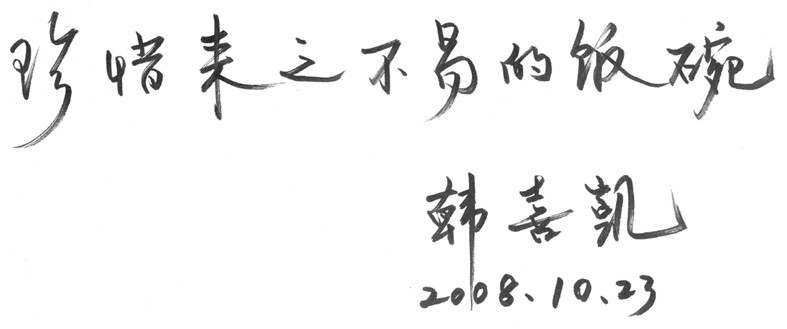 珍惜来之不易的饭碗
韩喜凯
2008.10.23